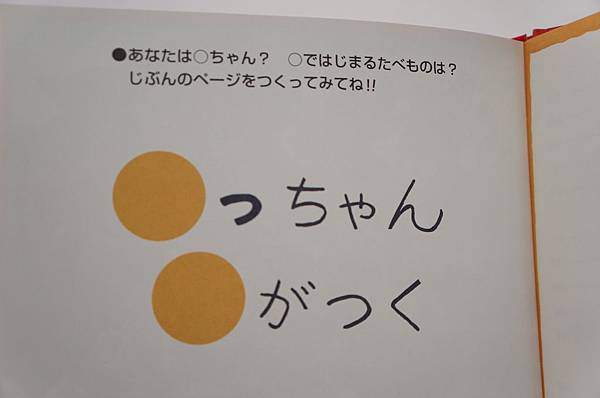 ●あなたは○ちゃん? ○ではじまるたべものは?
じぶんのページをつくってみてね!!
●っちゃん
●がつく